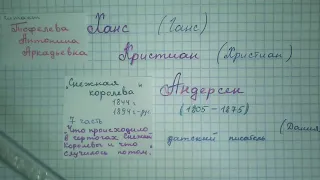 Тюфелева
Антонина
Аркадьевна
Ханс (Ганс)
Кристиан (Христиан)
Андерсен
(1805 - 1875)
датский писатель (Дания
"Снежная
королева"
1844 г.
1894 г. - рус
7 часть
Что происходило
в чертогах Снежной
королевы и что
случилось потом.